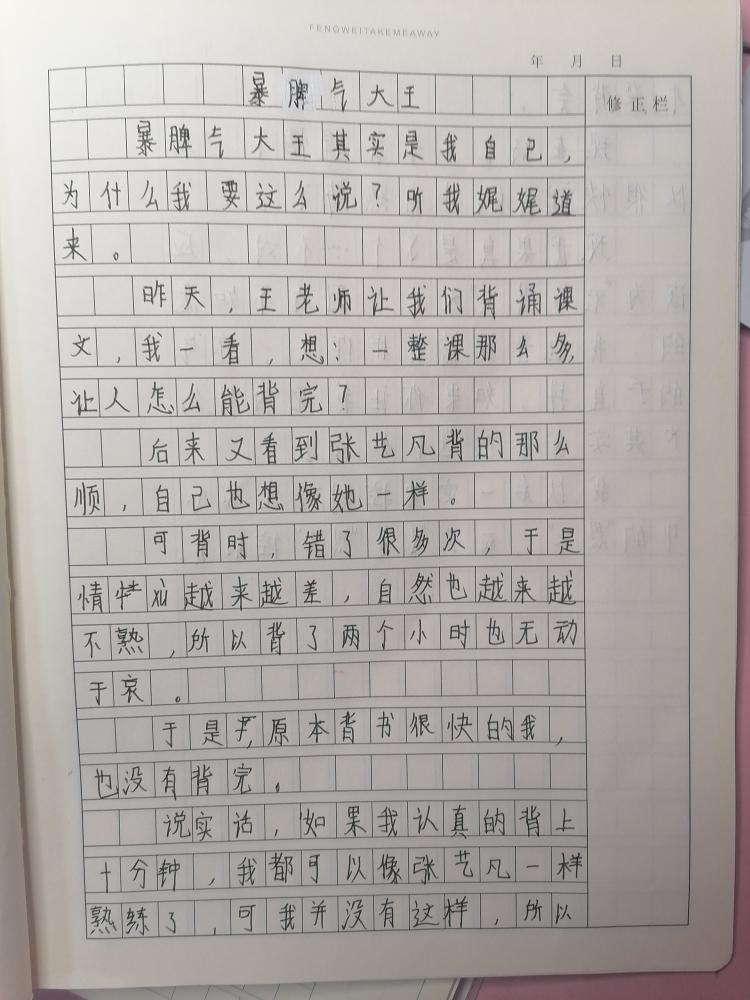 FENGWEITAKEMEAWAY
年 月 日
暴脾气大王
修正栏
暴脾气大王其实是我自己，
为什么我要这么说？听我娓娓道
来。
昨天，王老师让我们背诵课
文，我一看，想：一整课那么多，
让人怎么能背完？
后来又看到张艺凡背的那么
顺，自己也想像她一样。
可背时，错了很多次，于是
情越来越差，自然也越来越
不熟，所以背了两个小时也无动
于哀。
于是，原本背书很快的我，
也没有背完。
说实话，如果我认真的背上
十分钟，我都可以像张艺凡一样
熟练了，可我并没有这样，所以